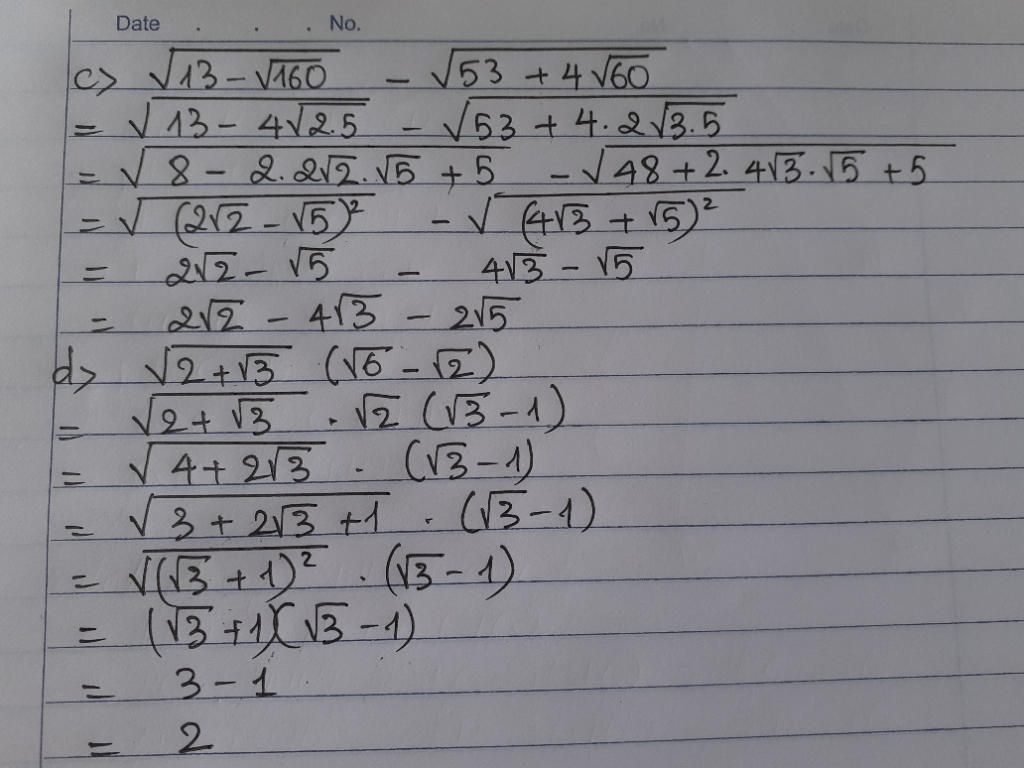 Date . . . No.
c> √(13 - √160) - √(53 + 4√60)
= √(13 - 4√(2.5)) - √(53 + 4.2√(3.5))
= √(8 - 2.2√2.√5 + 5) - √(48 + 2.4√3.√5 + 5)
= √((2√2 - √5)²) - √((4√3 + √5)²)
= 2√2 - √5 - 4√3 - √5
= 2√2 - 4√3 - 2√5
d> √(2 + √3) (√6 - √2)
= √(2 + √3) . √2 (√3 - 1)
= √(4 + 2√3) . (√3 - 1)
= √(3 + 2√3 + 1) . (√3 - 1)
= √((√3 + 1)²) . (√3 - 1)
= (√3 + 1)(√3 - 1)
= 3 - 1
= 2